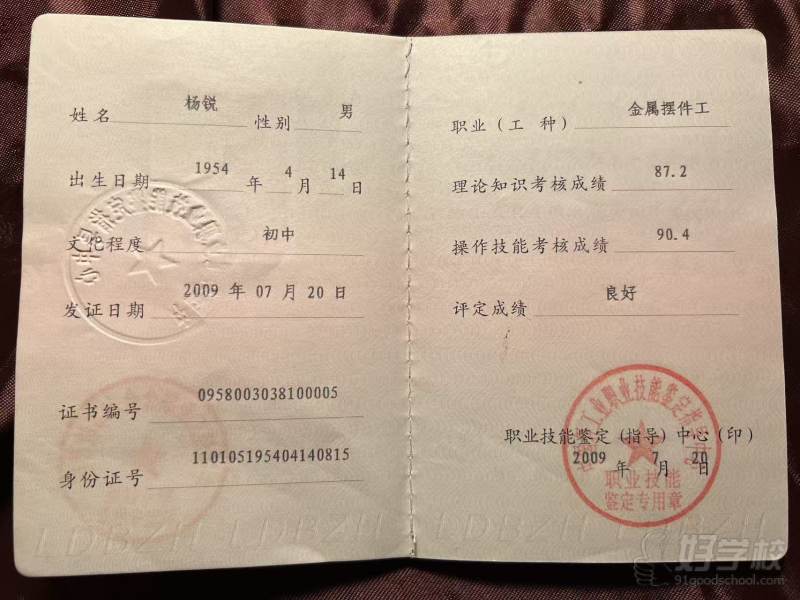 姓名 杨锐 性别 男
出生日期 1954 年 4 月 14 日
文化程度 初中
发证日期 2009 年 07 月 20 日
证书编号 0958003038100005
身份证号 110105195404140815
LDBZH LDBZH LDBZH
职业（工 种） 金属摆件工
理论知识考核成绩 87.2
操作技能考核成绩 90.4
评定成绩 良好
工业职业技能鉴定指导中心
职业技能鉴定（指导）中心（印）
2009 年 7 月 20 日
职业技能
鉴定专用章
好学校
91goodschool.com